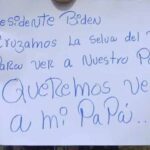 esidente Biden
Cruzamos la selva del
Para ver a Nuestro Pa
Queremos ve
a mi PaPá...